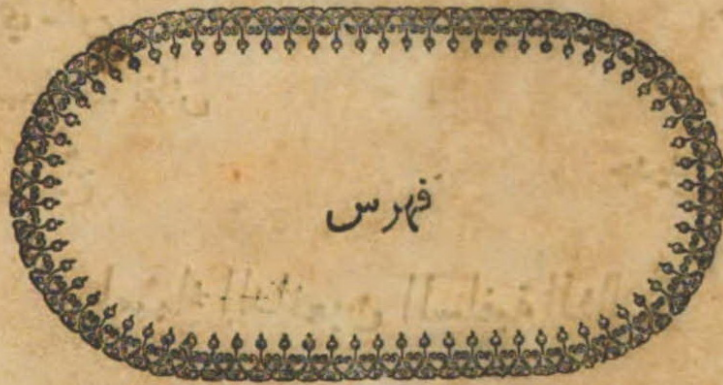 فهرس